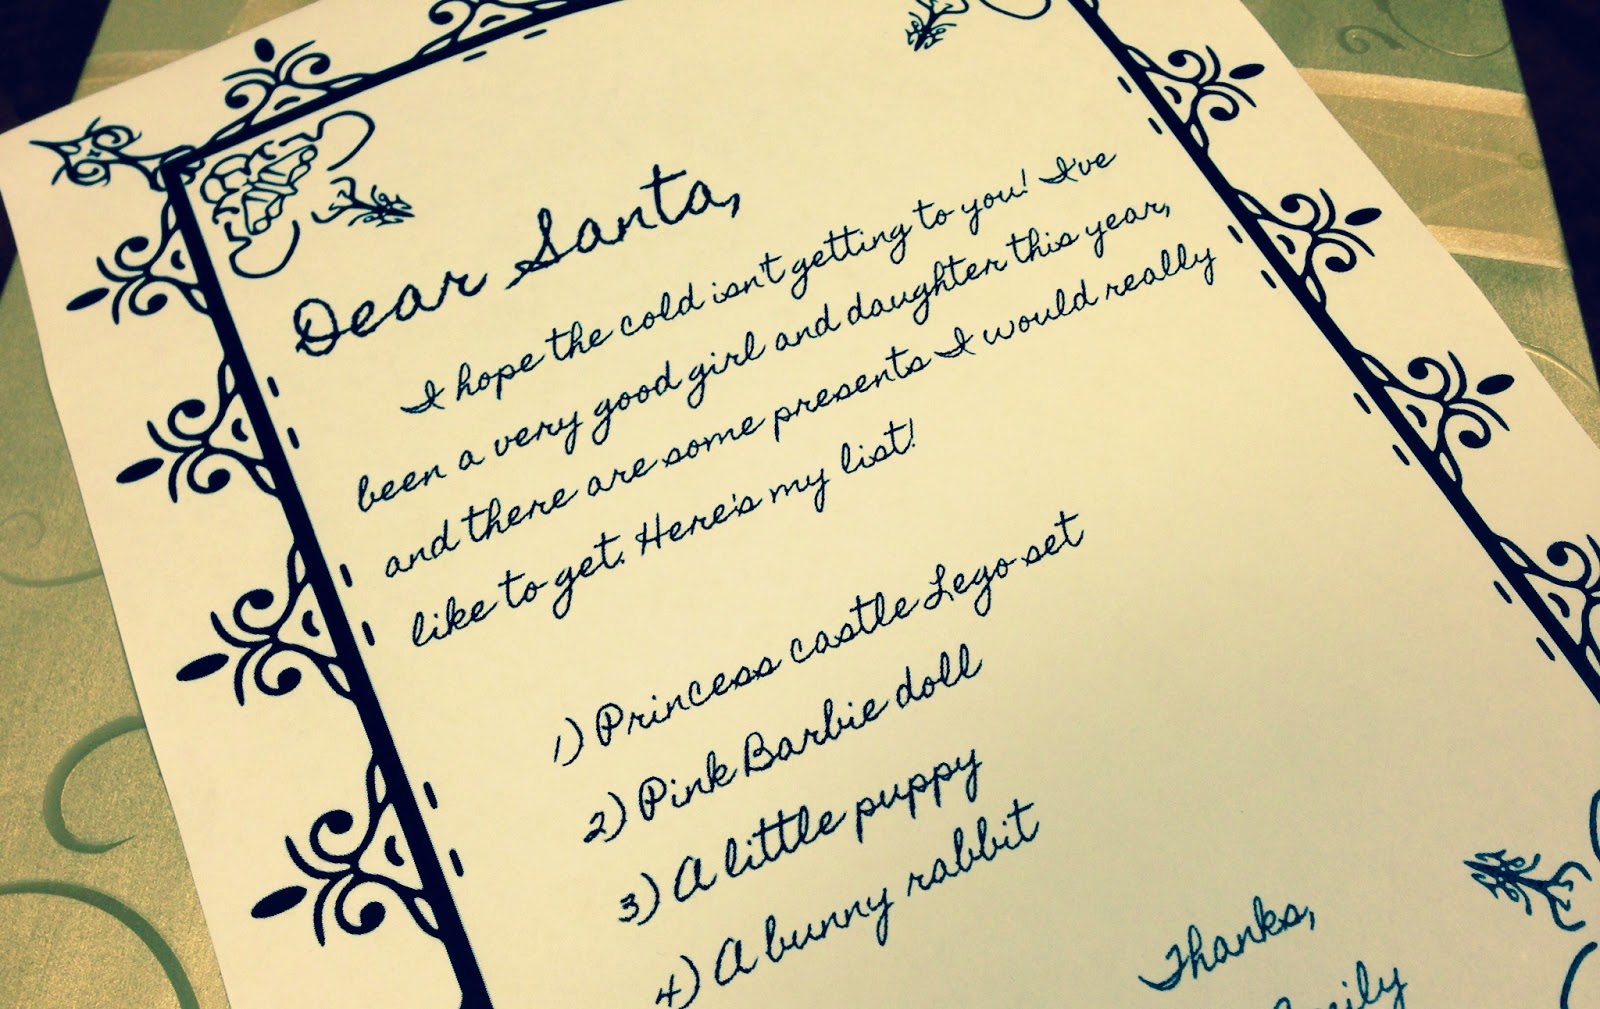 Dear Santa,
I hope the cold isn't getting to you! I've
been a very good girl and daughter this year,
and there are some presents I would really
like to get. Here's my list!
1) Princess castle Lego set
2) Pink Barbie doll
3) A little puppy
4) A bunny rabbit
Thanks,